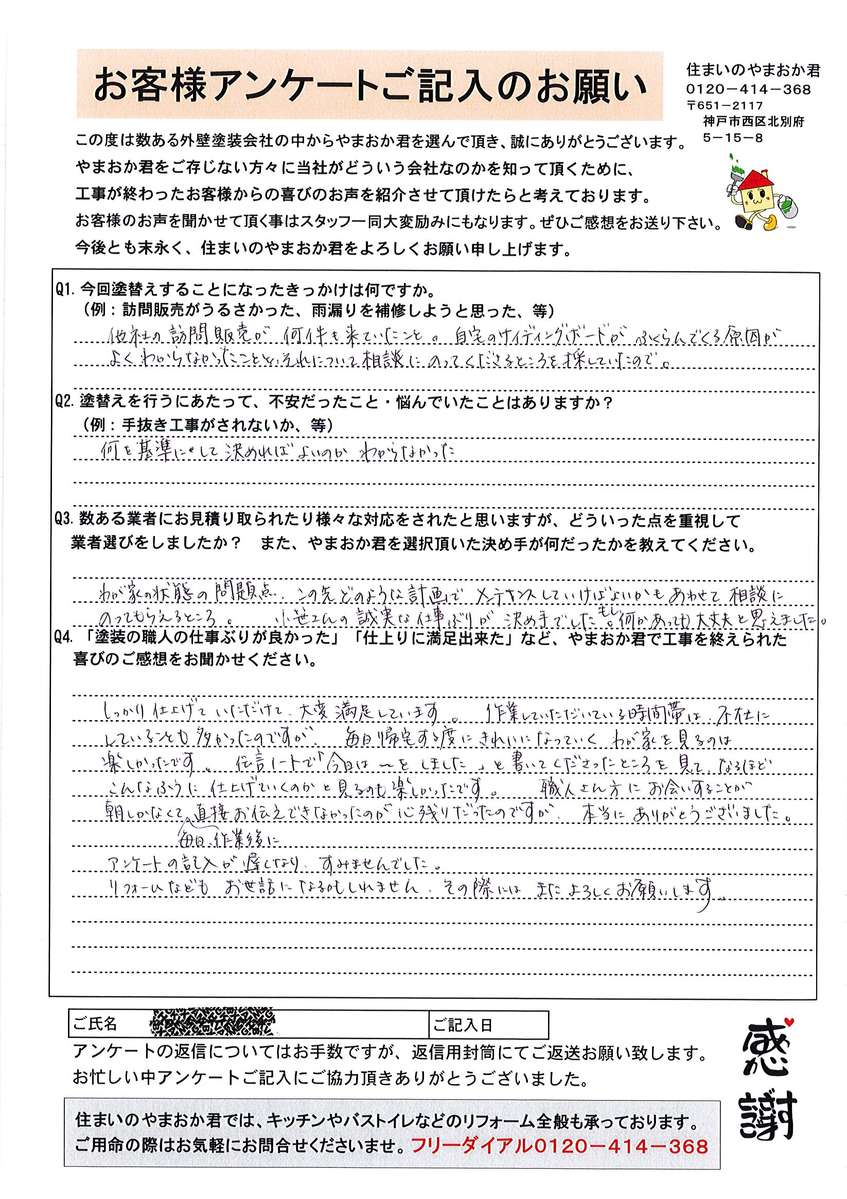 お客様アンケートご記入のお願い
住まいのやまおか君
0120-414-368
〒651-2117
神戸市西区北別府
5-15-8
この度は数ある外壁塗装会社の中からやまおか君を選んで頂き、誠にありがとうございます。
やまおか君をご存じない方々に当社がどういう会社なのかを知って頂くために、
工事が終わったお客様からの喜びのお声を紹介させて頂けたらと考えております。
お客様のお声を聞かせて頂く事はスタッフ一同大変励みにもなります。ぜひご感想をお送り下さい。
今後とも末永く、住まいのやまおか君をよろしくお願い申し上げます。
Q1. 今回塗替えすることになったきっかけは何ですか。
(例:訪問販売がうるさかった、雨漏りを補修しようと思った、等)
他社の訪問販売が 何件も来ていたこと。自宅のサイディングボードが ふくらんでくる原因が
よくわからなかったことと、それについて相談にのってくださるところを探していたので。
Q2. 塗替えを行うにあたって、不安だったこと・悩んでいたことはありますか?
(例:手抜き工事がされないか、等)
何を基準にして決めればよいのか わからなかった
Q3. 数ある業者にお見積り取られたり様々な対応をされたと思いますが、どういった点を重視して
業者選びをしましたか? また、やまおか君を選択頂いた決め手が何だったかを教えてください。
わが家の状態の問題点、この先どのような計画で メンテナンスしていけばよいかもあわせて 相談に
のってもらえるところ。 小笹さんの誠実な仕事ぶりが 決め手でした。もし何かあっても大丈夫と思えました。
Q4. 「塗装の職人の仕事ぶりが良かった」「仕上りに満足出来た」など、やまおか君で工事を終えられた
喜びのご感想をお聞かせください。
しっかり仕上げていただけて、大変満足しています。 作業していただいている時間帯は、不在に
していることも多かったのですが、 毎日帰宅する度にきれいになっていく わが家を見るのは
楽しかったです。 伝言ノートで「今日は 〜を しました」と書いてくださったところを見て、なるほど
こんなふうに 仕上げていくのかと見るのも楽しかったです。 職人さん方にお会いすることが
朝しかなくて、直接お伝えできなかったのが心残りだったのですが、 本当にありがとうございました。
毎日、作業後に
アンケートの記入が遅くなり、すみませんでした。
リフォームなども お世話になるかもしれません。その際には またよろしくお願いします。
ご氏名
ご記入日
アンケートの返信についてはお手数ですが、返信用封筒にてご返送お願い致します。
お忙しい中アンケートご記入にご協力頂きありがとうございました。
感謝
住まいのやまおか君では、キッチンやバストイレなどのリフォーム全般も承っております。
ご用命の際はお気軽にお問合せくださいませ。フリーダイアル0120-414-368